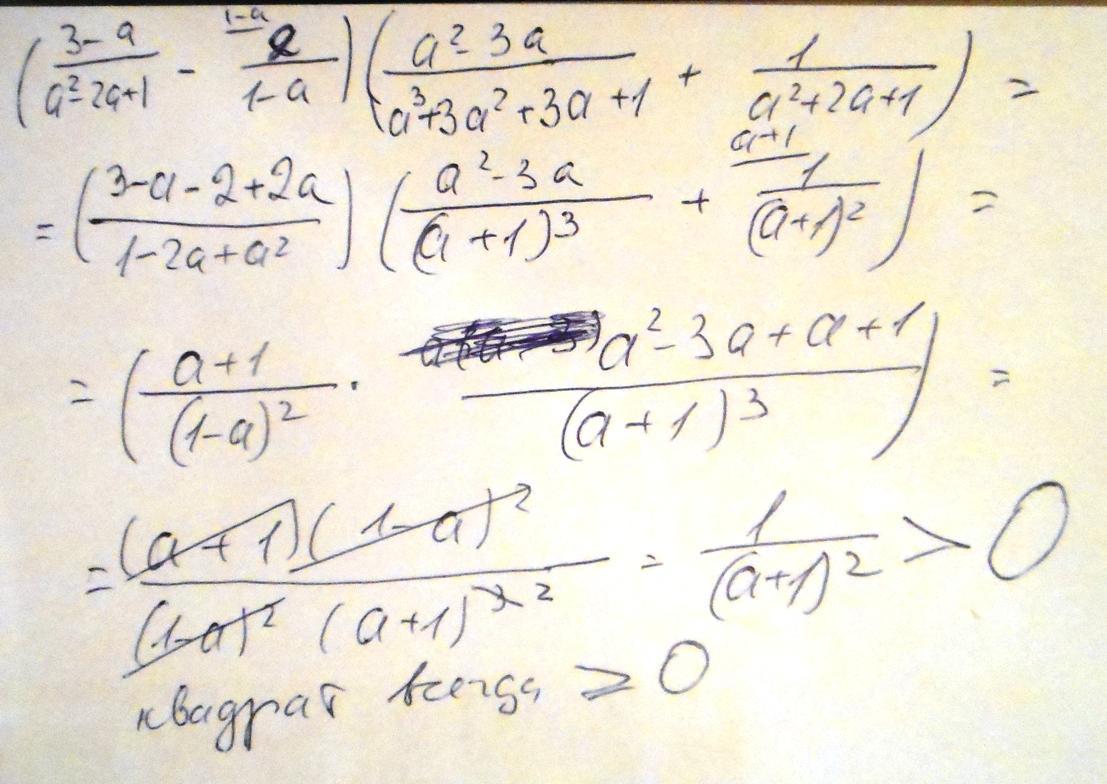 (3-a/a²-2a+1 - 1-a 2/1-a)(a²-3a/a³+3a²+3a+1 + 1/a²+2a+1) =
= (3-a-2+2a/1-2a+a²)(a²-3a/(a+1)³ + a+1 1/(a+1)²) =
= (a+1/(1-a)² · a²-3a+a+1/(a+1)³) =
= (a+1)(1-a)²/(1-a)² (a+1)² = 1/(a+1)² > 0
квадрат всегда ≥ 0